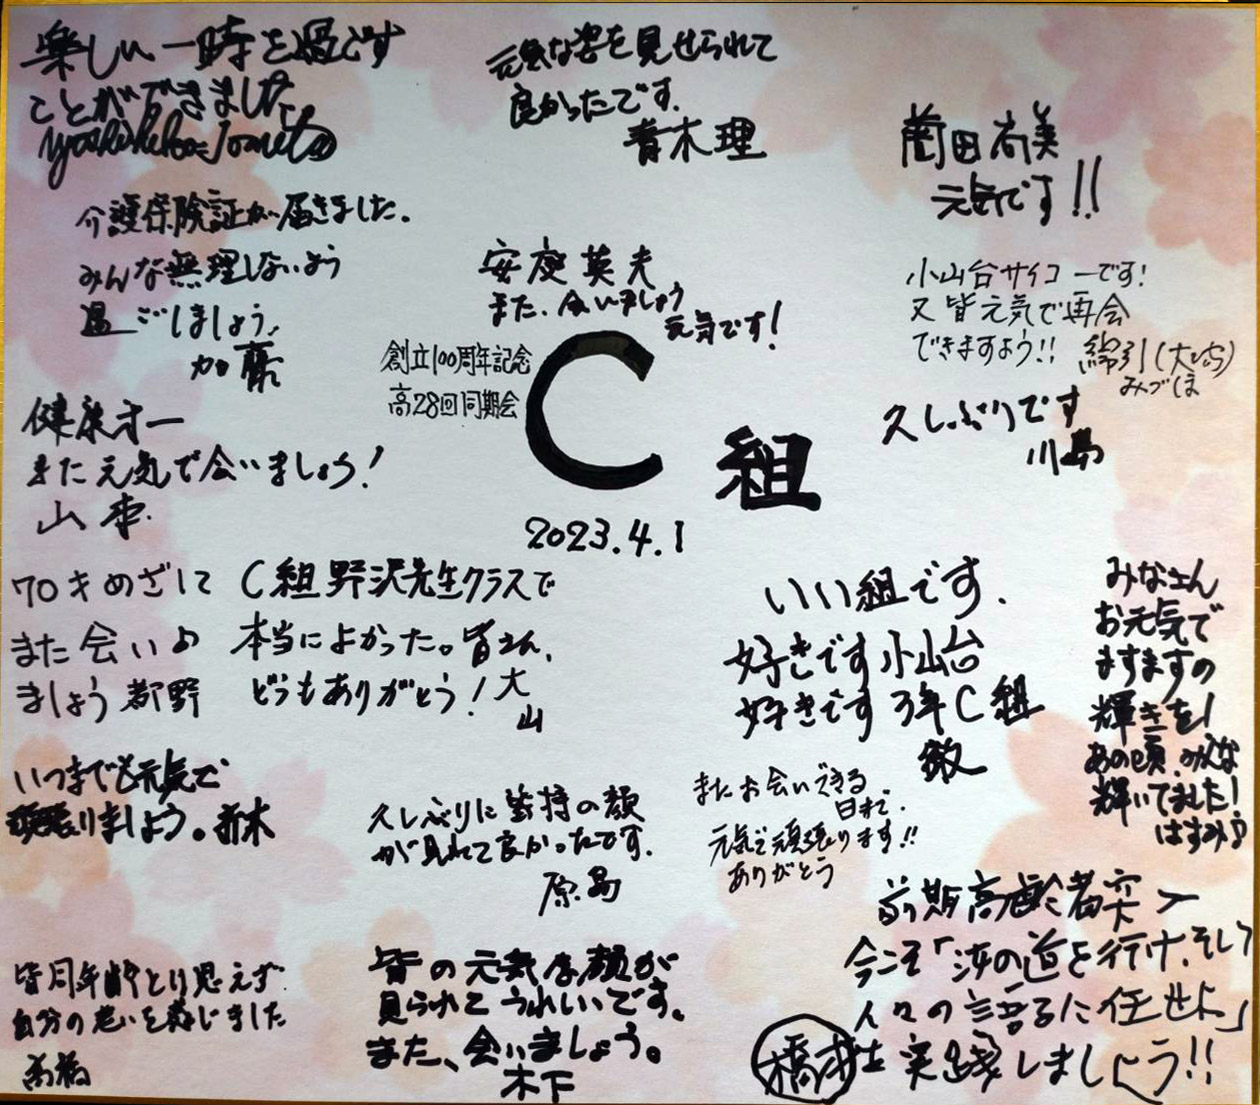 楽しい一時を過ごす
ことができました
元気な姿を見せられて
良かったです.
青木理
薗田尚美
元気です!!
介護保険証が届きました.
みんな無理しないよう
過ごしましょう.
加藤
安庭英夫
また、会いましょう
元気です!
小山台サイコーです!
又皆元気で再会
できますよう!!
綿引(大いち)
みづほ
創立100周年記念
高28回同期会
C組
2023.4.1
久しぶりです
川島
健康才一
また元気で会いましょう!
山本.
70才めざして
また会い
ましょう都野
C組野沢先生クラスで
本当によかった。皆さん、
どうもありがとう!大
山
いい組です.
好きです小山台
好きです3年C組
敏
みなさん
お元気で
ますますの
輝きを!
あの頃、みんな
輝いてました!
はすみ♪
いつまでも元気で
頑張りましょう。 新木
久しぶりに皆様の顔
が見れて良かったです.
原島
またお会いできる
日まで.
元気で頑張ります!!
ありがとう
前期高齢者突入
今こそ「汝の道を行け、そして
人々の語るに任せよ」
を実践しましょう!!
橋本
皆同年齢とり思えず
自分の老いを感じました
高橋
皆の元気な顔が
見られてうれしいです。
また、会いましょう。
木下